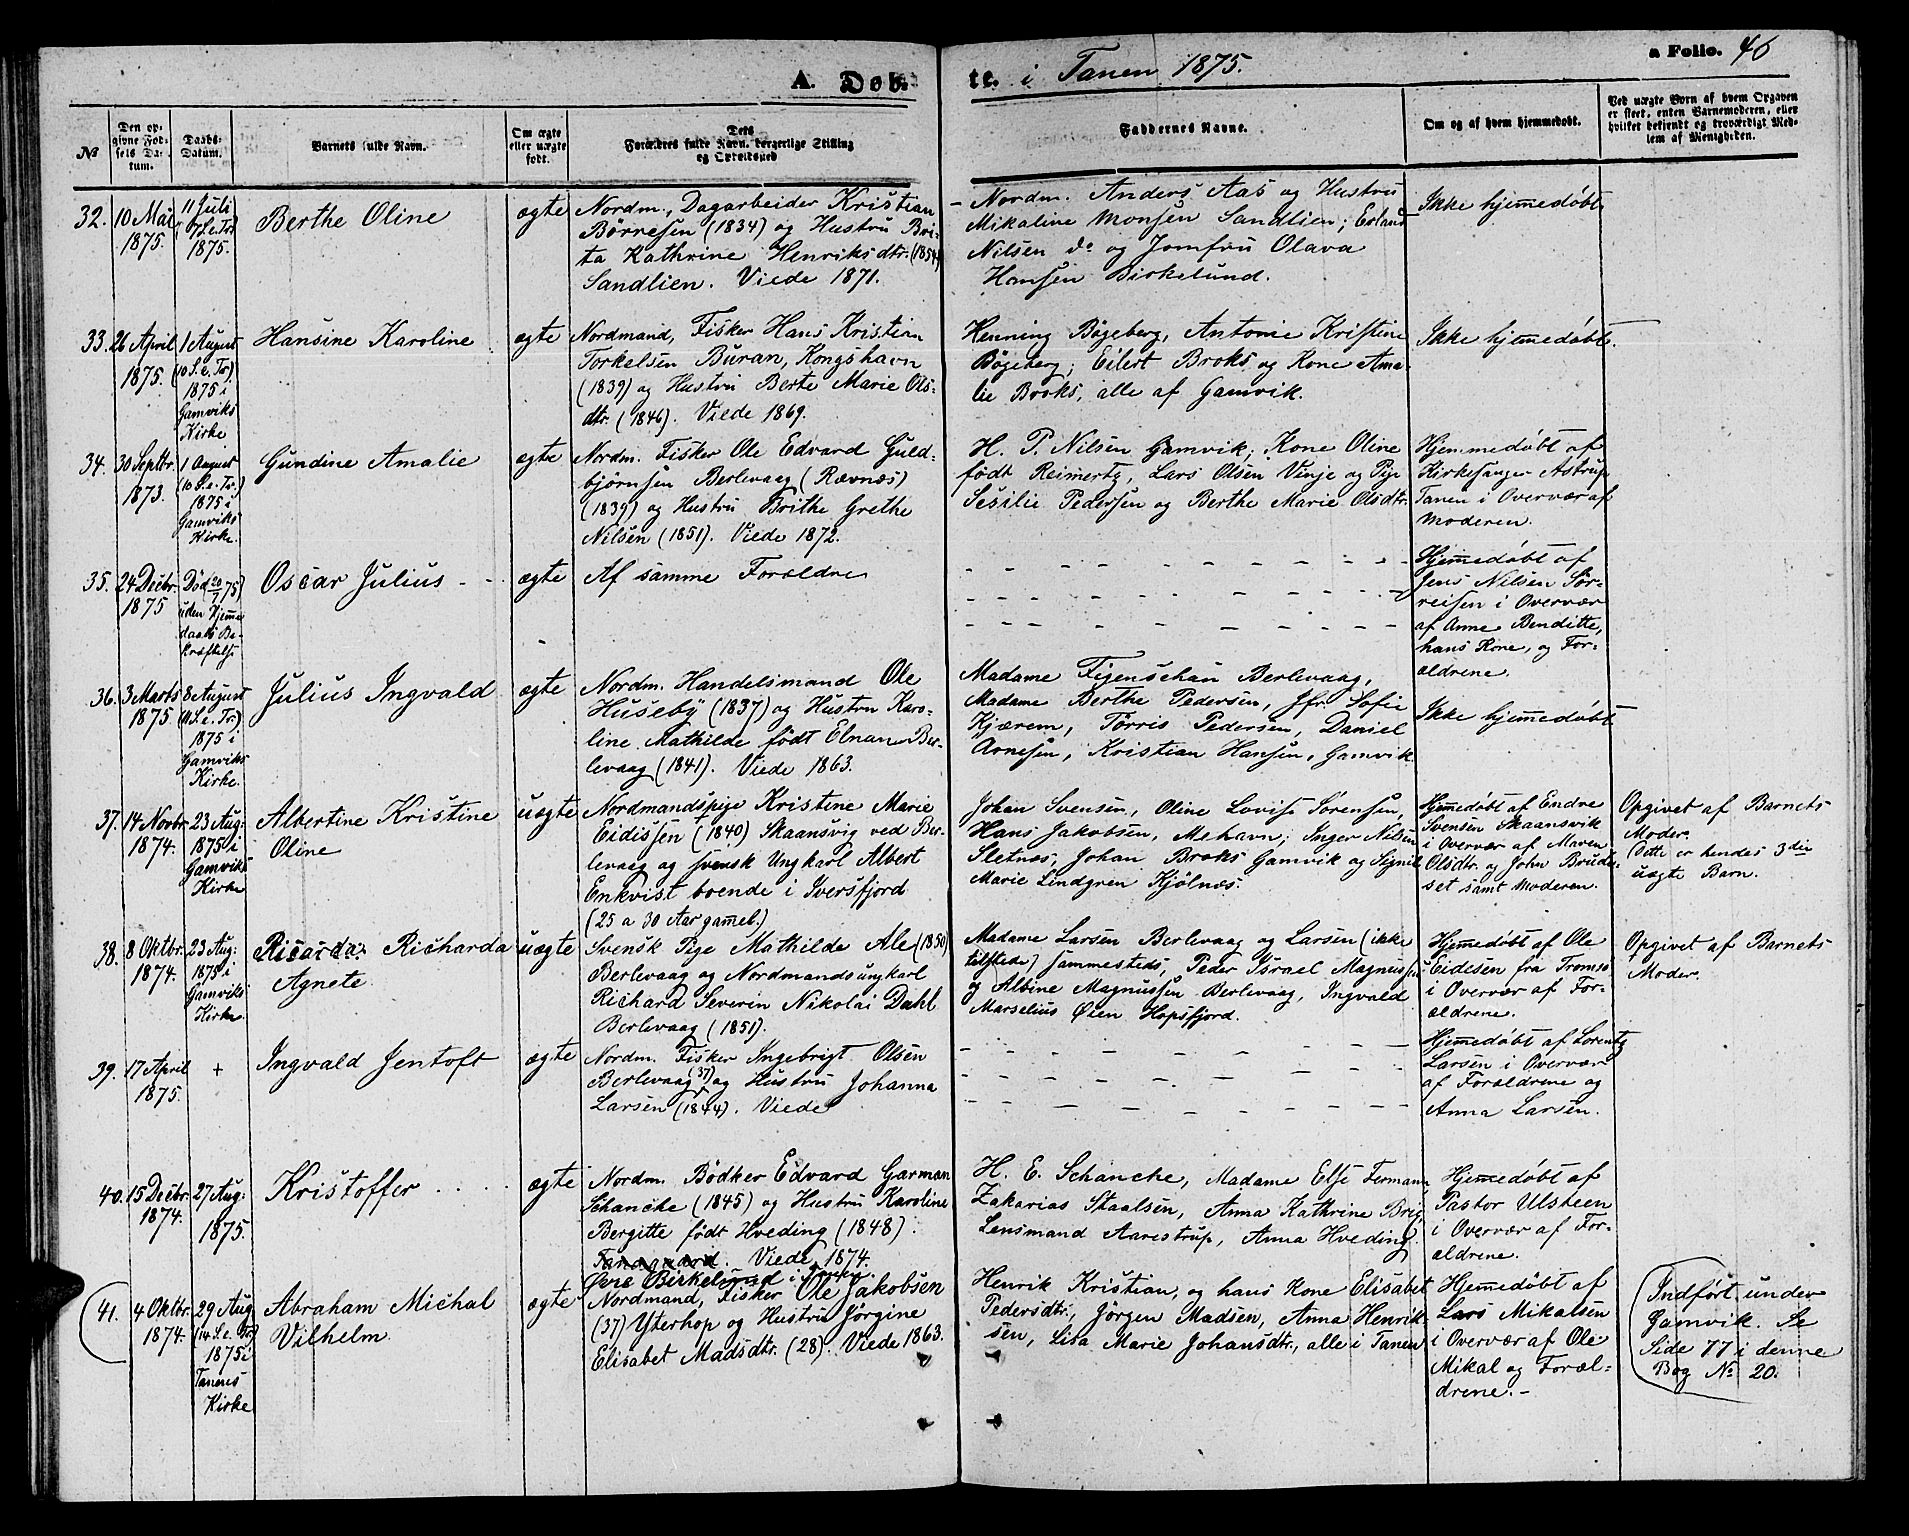 A. Døb-
te. i Tanen 1875.
a Folio. 46
No
Den op-
givne Fød-
sels Da-
tum.
Daabs-
Datum.
Barnets fulde Navn.
Om ægte
eller uægte
født.
Dets
Forældres fulde Navn, borgerlige Stilling
og Opholdssted
Faddernes Navne.
Om og af hvem hjemmedøbt.
Ved uægte Børn af hvem Opgaven
er skeet, enten Barnemoderen, eller
hvilket bekjendt og troværdigt Med-
lem af Menigheden.
32.
10 Mai
1875.
11 Juli
(7 S. e. Tr.)
1875.
Berthe Oline
ægte
Nordm., Dagarbeider Kristian
Børresen (1834) og Hustru Bri-
ta Kathrine Henriksdtr. (1854)
Sandlien. Viede 1871.
- Nordm. Anders Aas og Hustru
Mikaline Monsen Sandlien; Erland
Nilsen do og Jomfru Olava
Hansen Birkelund.
Ikke hjemmedøbt.
33.
26 April
1875.
1 August
(10 S. e. Tr.)
1875 i
Gamviks
Kirke
Hansine Karoline
ægte
Nordmand, Fisker Hans Kristian
Torkelsen Buran, Kongshavn
(1839) og Hustru Berte Marie Ols-
dtr. (1846). Viede 1869.
Henning Bøgeberg, Antonie Kristine
Bøgeberg; Eilert Broks og Kone Ama-
lie Broks, alle af Gamvik.
Ikke hjemmedøbt.
34.
30 Septbr.
1873.
1 August
(10 S. e. Tr.)
1875 i
Gamviks
Kirke.
Gundine Amalie
ægte
Nordm. Fisker Ole Edvard Guld-
bjørnsen Berlevaag (Rævnæs)
(1839) og Hustru Brithe Grethe
Nilsen (1851). Viede 1872.
H. P. Nilsen Gamvik, Kone Oline
født Reimertz, Lars Olsen Vinje og Pige
Sesilie Pedersen og Berthe Marie Olsdtr.
Hjemmedøbt af
Kirkesanger Astrup
Tanen i Overvær af
Moderen.
35.
24 Decbr.
1875
(Død 20/7 75)
uden Hjemme
daabs Be-
kræftelse
Oscar Julius - -
ægte
Af samme Forældre
Hjemmedøbt af
Jens Nilsen Sør-
reisen i Overvær
af Anne Benditte,
hans Kone, og For-
ældrene.
36.
3 Marts
1875
8 August
(11 S. e. Tr.)
1875 i
Gamviks
Kirke.
Julius Ingvald
ægte
Nordm. Handelsmand Ole
Huseby (1837) og Hustru Karo-
line Mathilde født Elnan Ber-
levaag (1841). Viede 1863.
Madame Figenschau Berlevaag,
Madame Berthe Pedersen, Jfr. Sofie
Kjærem, Tørris Pedersen, Daniel
Arnesen, Kristian Hansen, Gamvik
Ikke hjemmedøbt
37.
14 Novbr.
1874.
23 Aug:
1875 i
Gamviks
Kirke
Albertine Kristine
Oline
uægte
Nordmandspige Kristine Marie
Eidissen (1840) Skaansvig ved Ber-
levaag og svensk Ungkarl Albert
Enkvist boende i Iversfjord
(25 a 30 Aar gammel.)
Johan Svensen, Oline Lovise Sørensen,
Hans Jakobsen, Mehavn; Inger Nilsen
Sletnes, Johan Broks Gamvik og Signil
Marie Lindgren Kjölnæs.
Hjemmedøbt af Endre
Svensen Skaansvik
i Overvær af Maren
Olsdtr. og John Brude-
set samt Moderen.
Opgivet af Barnets
Moder.
Dette er hendes 3die
uægte Barn.
38.
8 Oktbr.
1874.
23 Aug:
1875 i
Gamviks
Kirke.
Ricarda: Richarda
Agnete
uægte
Svensk Pige Mathilde Ale (1850)
Berlevaag og Nordmandsungkarl
Richard Severin Nikolai Dahl
Berlevaag (1851).
Madame Larsen Berlevaag og Larsen (ikke
tilstede) sammesteds, Peder Israel Magnussen
og Albine Magnussen Berlevaag, Ingvald
Marselius Øien Hopsfjord.
Hjemmedøbt af Ole
Eidesen fra Tromsø
i Overvær af For-
ældrene.
Opgivet af Barnets
Moder.
39.
17 April
1875.
+
Ingvald Jentoft
ægte
Nordm. Fisker Ingebrigt Olsen
Berlevaag (37) og Hustru Johanna
Larsen (1844). Viede
Hjemmedøbt af Lorentz
Larsen i Overvær
af Forældrene og
Anna Larsen.
40.
15 Decbr.
1874.
27 Aug:
1875.
Kristoffer . . . .
ægte
Nordm. Bødker Edvard Garman
Schancke (1845) og Hustru Karoline
Bergitte født Hveding (1848).
Tanagaard. Viede 1874.
Øvre Birkelund i Tanen.
H. E. Schancke, Madame Else Fermann
Zakarias Staalsen, Anna Kathrine Brig
Lensmand Aarestrup, Anna Hveding
Hjemmedøbt af
Pastor Ulsteen
i Overvær af For-
ældrene.
41.
4 Oktbr.
1874.
29 Aug
(14 S. e. Tr.)
1875 i
Tanens
Kirke
Abraham Michal
Vilhelm.
ægte
Nordmand, Fisker Ole Jakobsen
(37) Yterhop og Hustru Jørgine
Elisabet Madsdtr. (28). Viede 1863.
Henrik Kristian, og hans Kone Elisabet
Pedersdtr., Jørgen Madsen, Anna Henrik-
sen, Lisa Marie Johansdtr., alle i Tanen
Hjemmedøbt af
Lars Mikalsen
i Overvær af Ole
Mikal og Foræl-
drene. -
Indført under
Gamvik. Se
Side 77 i denne
Bog No 20.